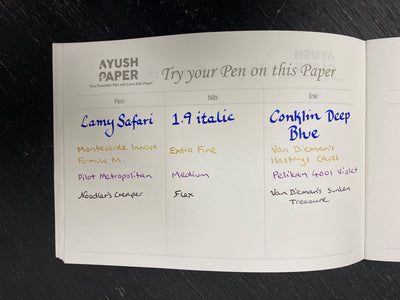 AYUSH
PAPER
Your Fountain Pen will Love this Paper
Try your Pen on this Paper
Pen Nib Ink
Lamy Safari 1.9 italic Conklin Deep
Blue
Monteverde Innova Extra Fine Van Dieman's
Formula M Hastings Caves
Pilot Metropolitan Medium Pelikan 4001 Violet
Noodler's Creaper Flex Van Dieman's Sunken
Treasure